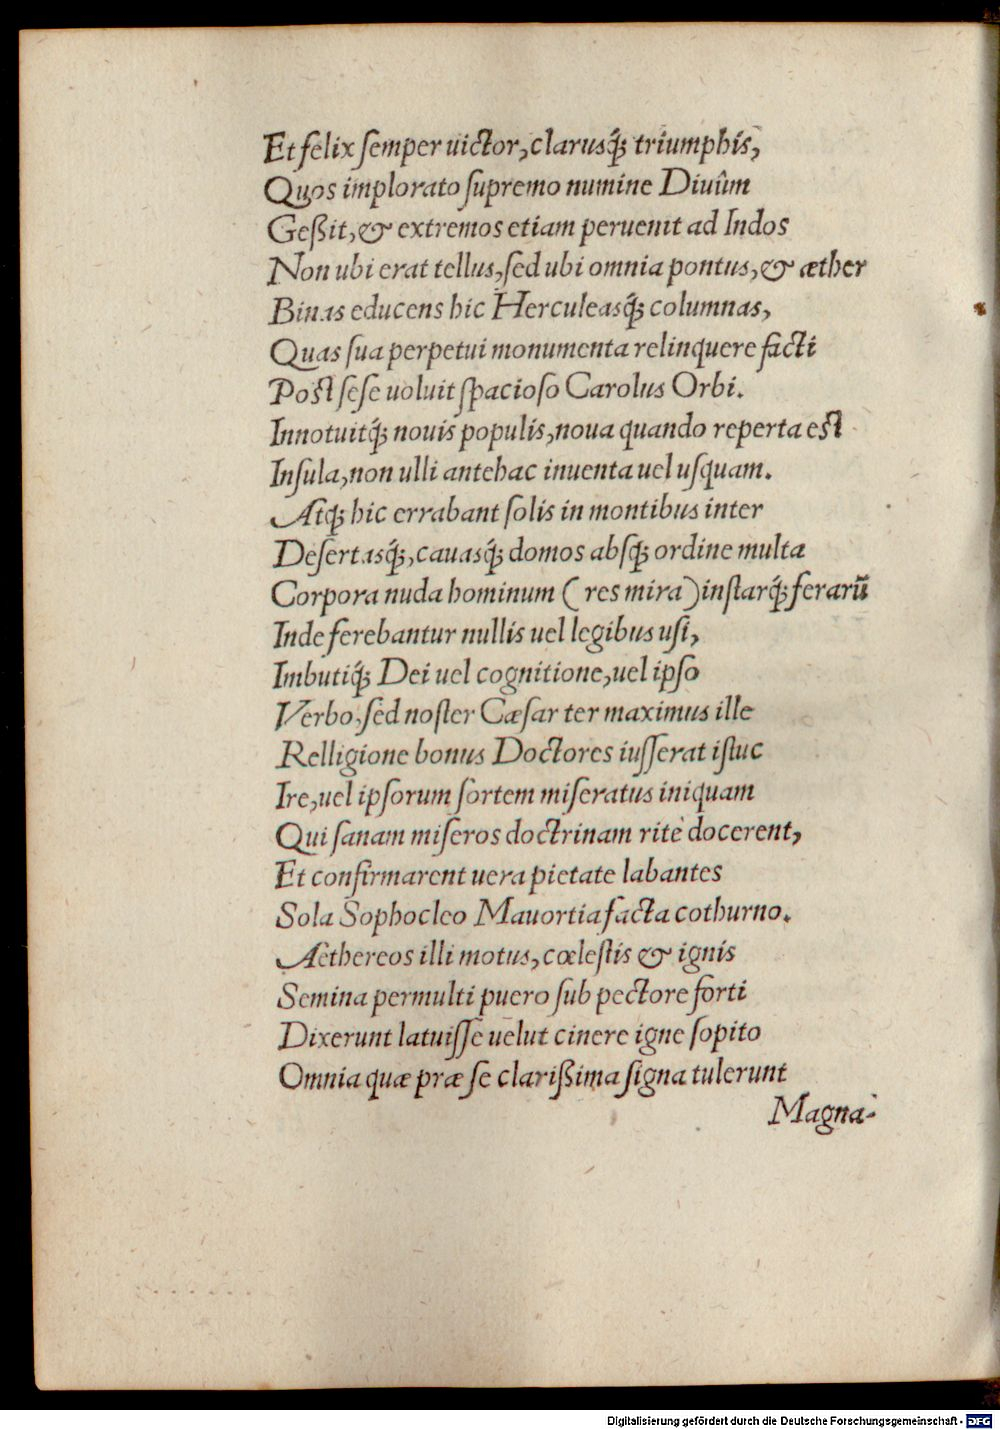 Et felix ſemper uictor, clarusq́; triumphis,
Quos implorato ſupremo numine Diuûm
Geßit, & extremos etiam peruenit ad Indos
Non ubi erat tellus, ſed ubi omnia pontus, & æther
Binas educens hic Herculeasq́; columnas,
Quas ſua perpetui monumenta relinquere facti
Poſt ſeſe uoluit ſpacioſo Carolus Orbi.
Innotuitq́; nouis populis, noua quando reperta eſt
Inſula, non ulli antehac inuenta uel uſquam.
Atq; hic errabant ſolis in montibus inter
Deſertasq́;, cauasq́; domos abſq; ordine multa
Corpora nuda hominum (res mira) inſtarq́; ferarū
Inde ferebantur nullis uel legibus uſi,
Imbutiq́; Dei uel cognitione, uel ipſo
Verbo, ſed noſter Cæſar ter maximus ille
Relligione bonus Doctores iuſſerat iſtuc
Ire, uel ipſorum ſortem miſeratus iniquam
Qui ſanam miſeros doctrinam ritè docerent,
Et confirmarent uera pietate labantes
Sola Sophocleo Mauortia facta cothurno.
Aethereos illi motus, cœleſtis & ignis
Semina permulti puero ſub pectore forti
Dixerunt latuiſſe uelut cinere igne ſopito
Omnia quæ præ ſe clarißima ſigna tulerunt
Magna-
Digitalisierung gefördert durch die Deutsche Forschungsgemeinschaft - DFG